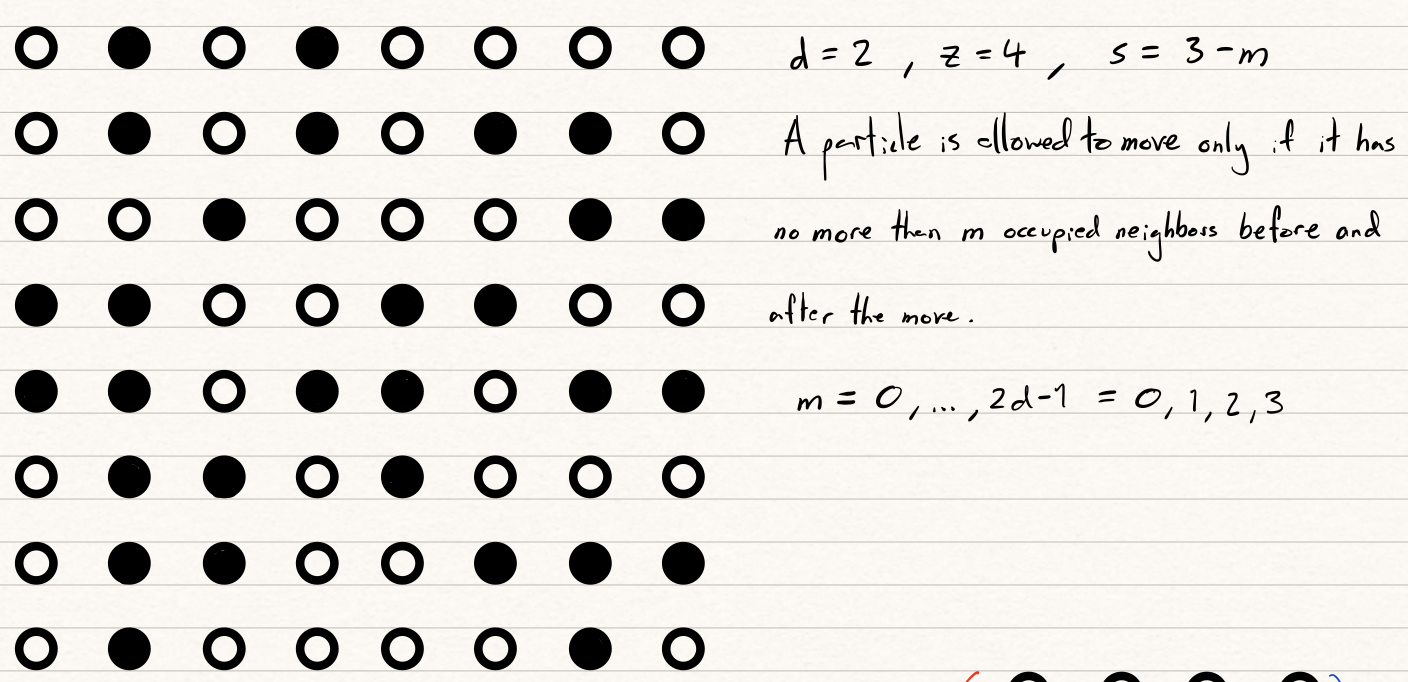 d = 2 , z = 4 , s = 3 - m
A particle is allowed to move only if it has
no more than m occupied neighbors before and
after the move.
m = 0, ..., 2d-1 = 0, 1, 2, 3